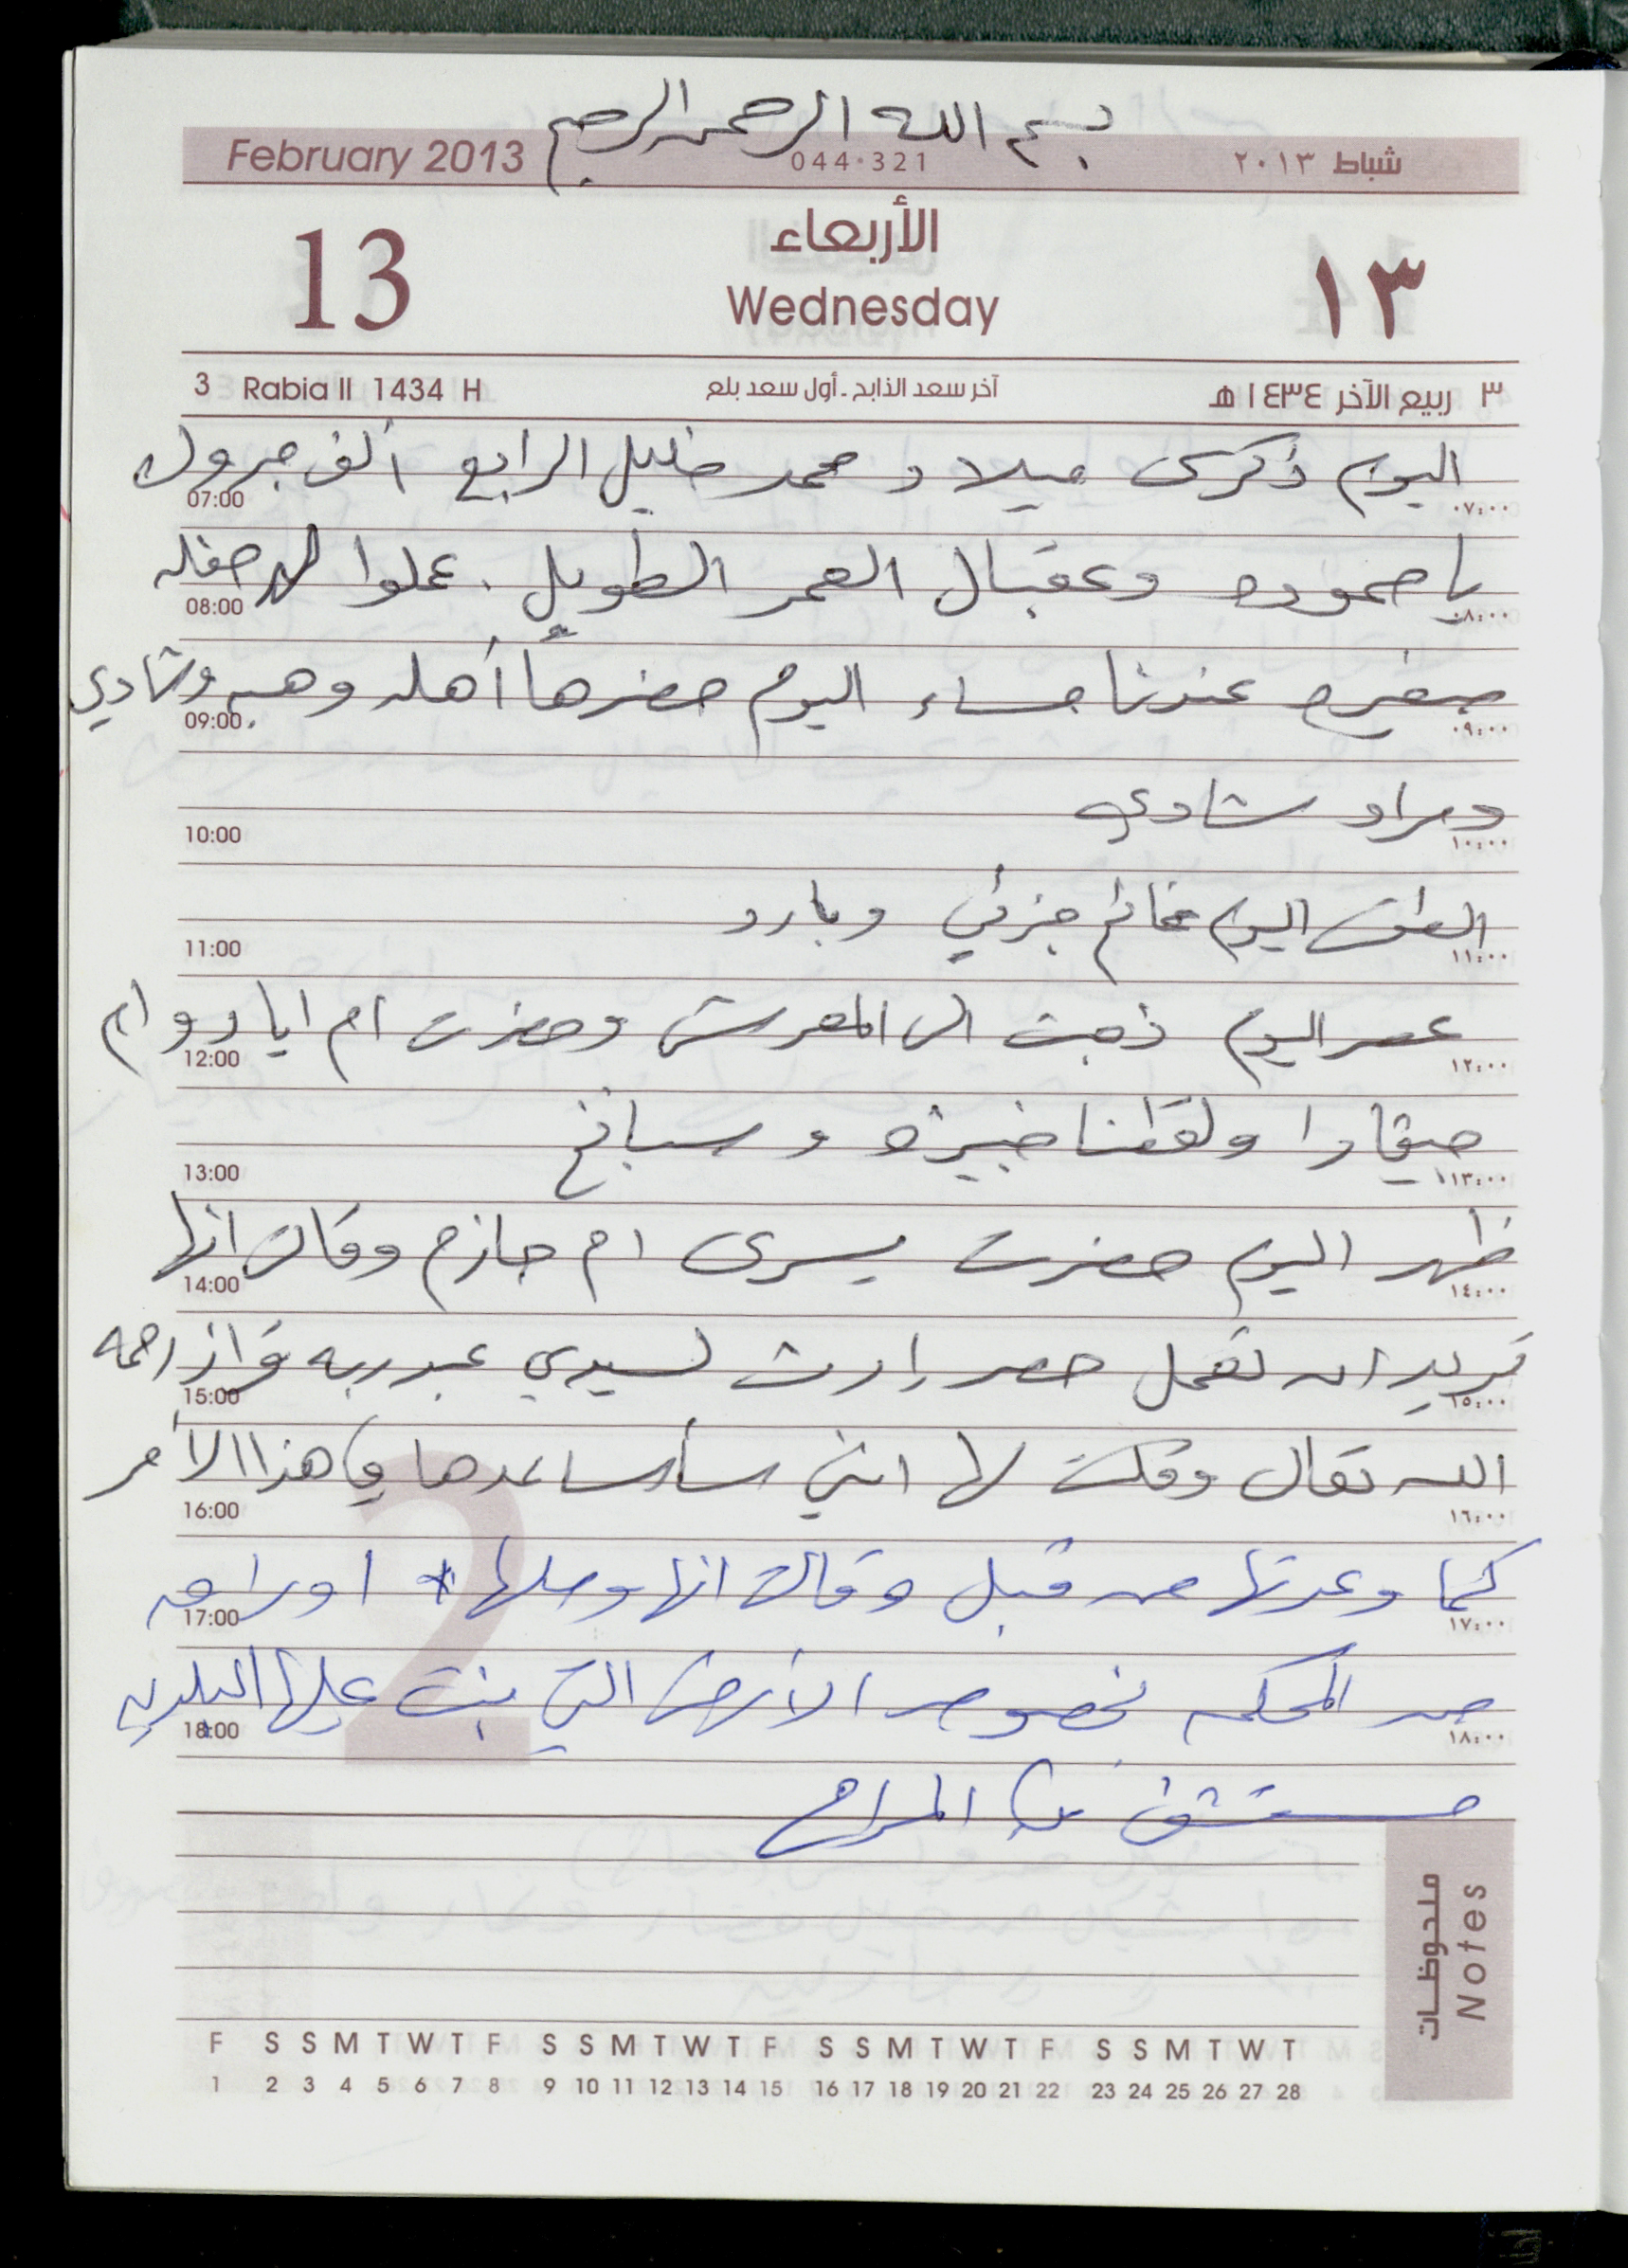 بسم الله الرحمن الرحيم
February 2013 044-321 شباط ٢٠١٣
13 الأربعاء ١٣
Wednesday
3 Rabia II 1434 H آخر سعد الذابح ـ أول سعد بلع ٣ ربيع الآخر ١٤٣٤ هـ
اليوم ذكرى ميلاد محمد خليل الرابع ألف مبروك
07:00 ٠٧:٠٠
يا حموده وعقبال العمر الطويل . عملوا له حفله
08:00 ٠٨:٠٠
صغيره عندنا مساء اليوم حضرها أهله وهبه وشادي
09:00 ٠٩:٠٠
ومراد شادي
10:00 ١٠:٠٠
الطقس اليوم غائم جزئي وبارد
11:00 ١١:٠٠
عصر اليوم ذهبت الى المعرش وحضرت ام اياد وام
12:00 ١٢:٠٠
ولقطنا خبيزه وسبانخ
13:00 ١٣:٠٠
ظهر اليوم حضرت يسرى ام حازم وقالت انها
14:00 ١٤:٠٠
تريد ان تعمل حصر إرث لسيدي عبد ربه فواز رحمه
15:00 ١٥:٠٠
الله تعالى وقلت لها انني سأساعدها في هذا الأمر
16:00 ١٦:٠٠
كما وعدتها من قبل وقالت انها وصلها اوراق
17:00 ١٧:٠٠
من المحكمه بخصوص الأرض التي بنت عليها البلديه
18:00 ١٨:٠٠
مستشفى في المراح
2
ملحوظات
Notes
F S S M T W T F S S M T W T F S S M T W T F S S M T W T
1 2 3 4 5 6 7 8 9 10 11 12 13 14 15 16 17 18 19 20 21 22 23 24 25 26 27 28